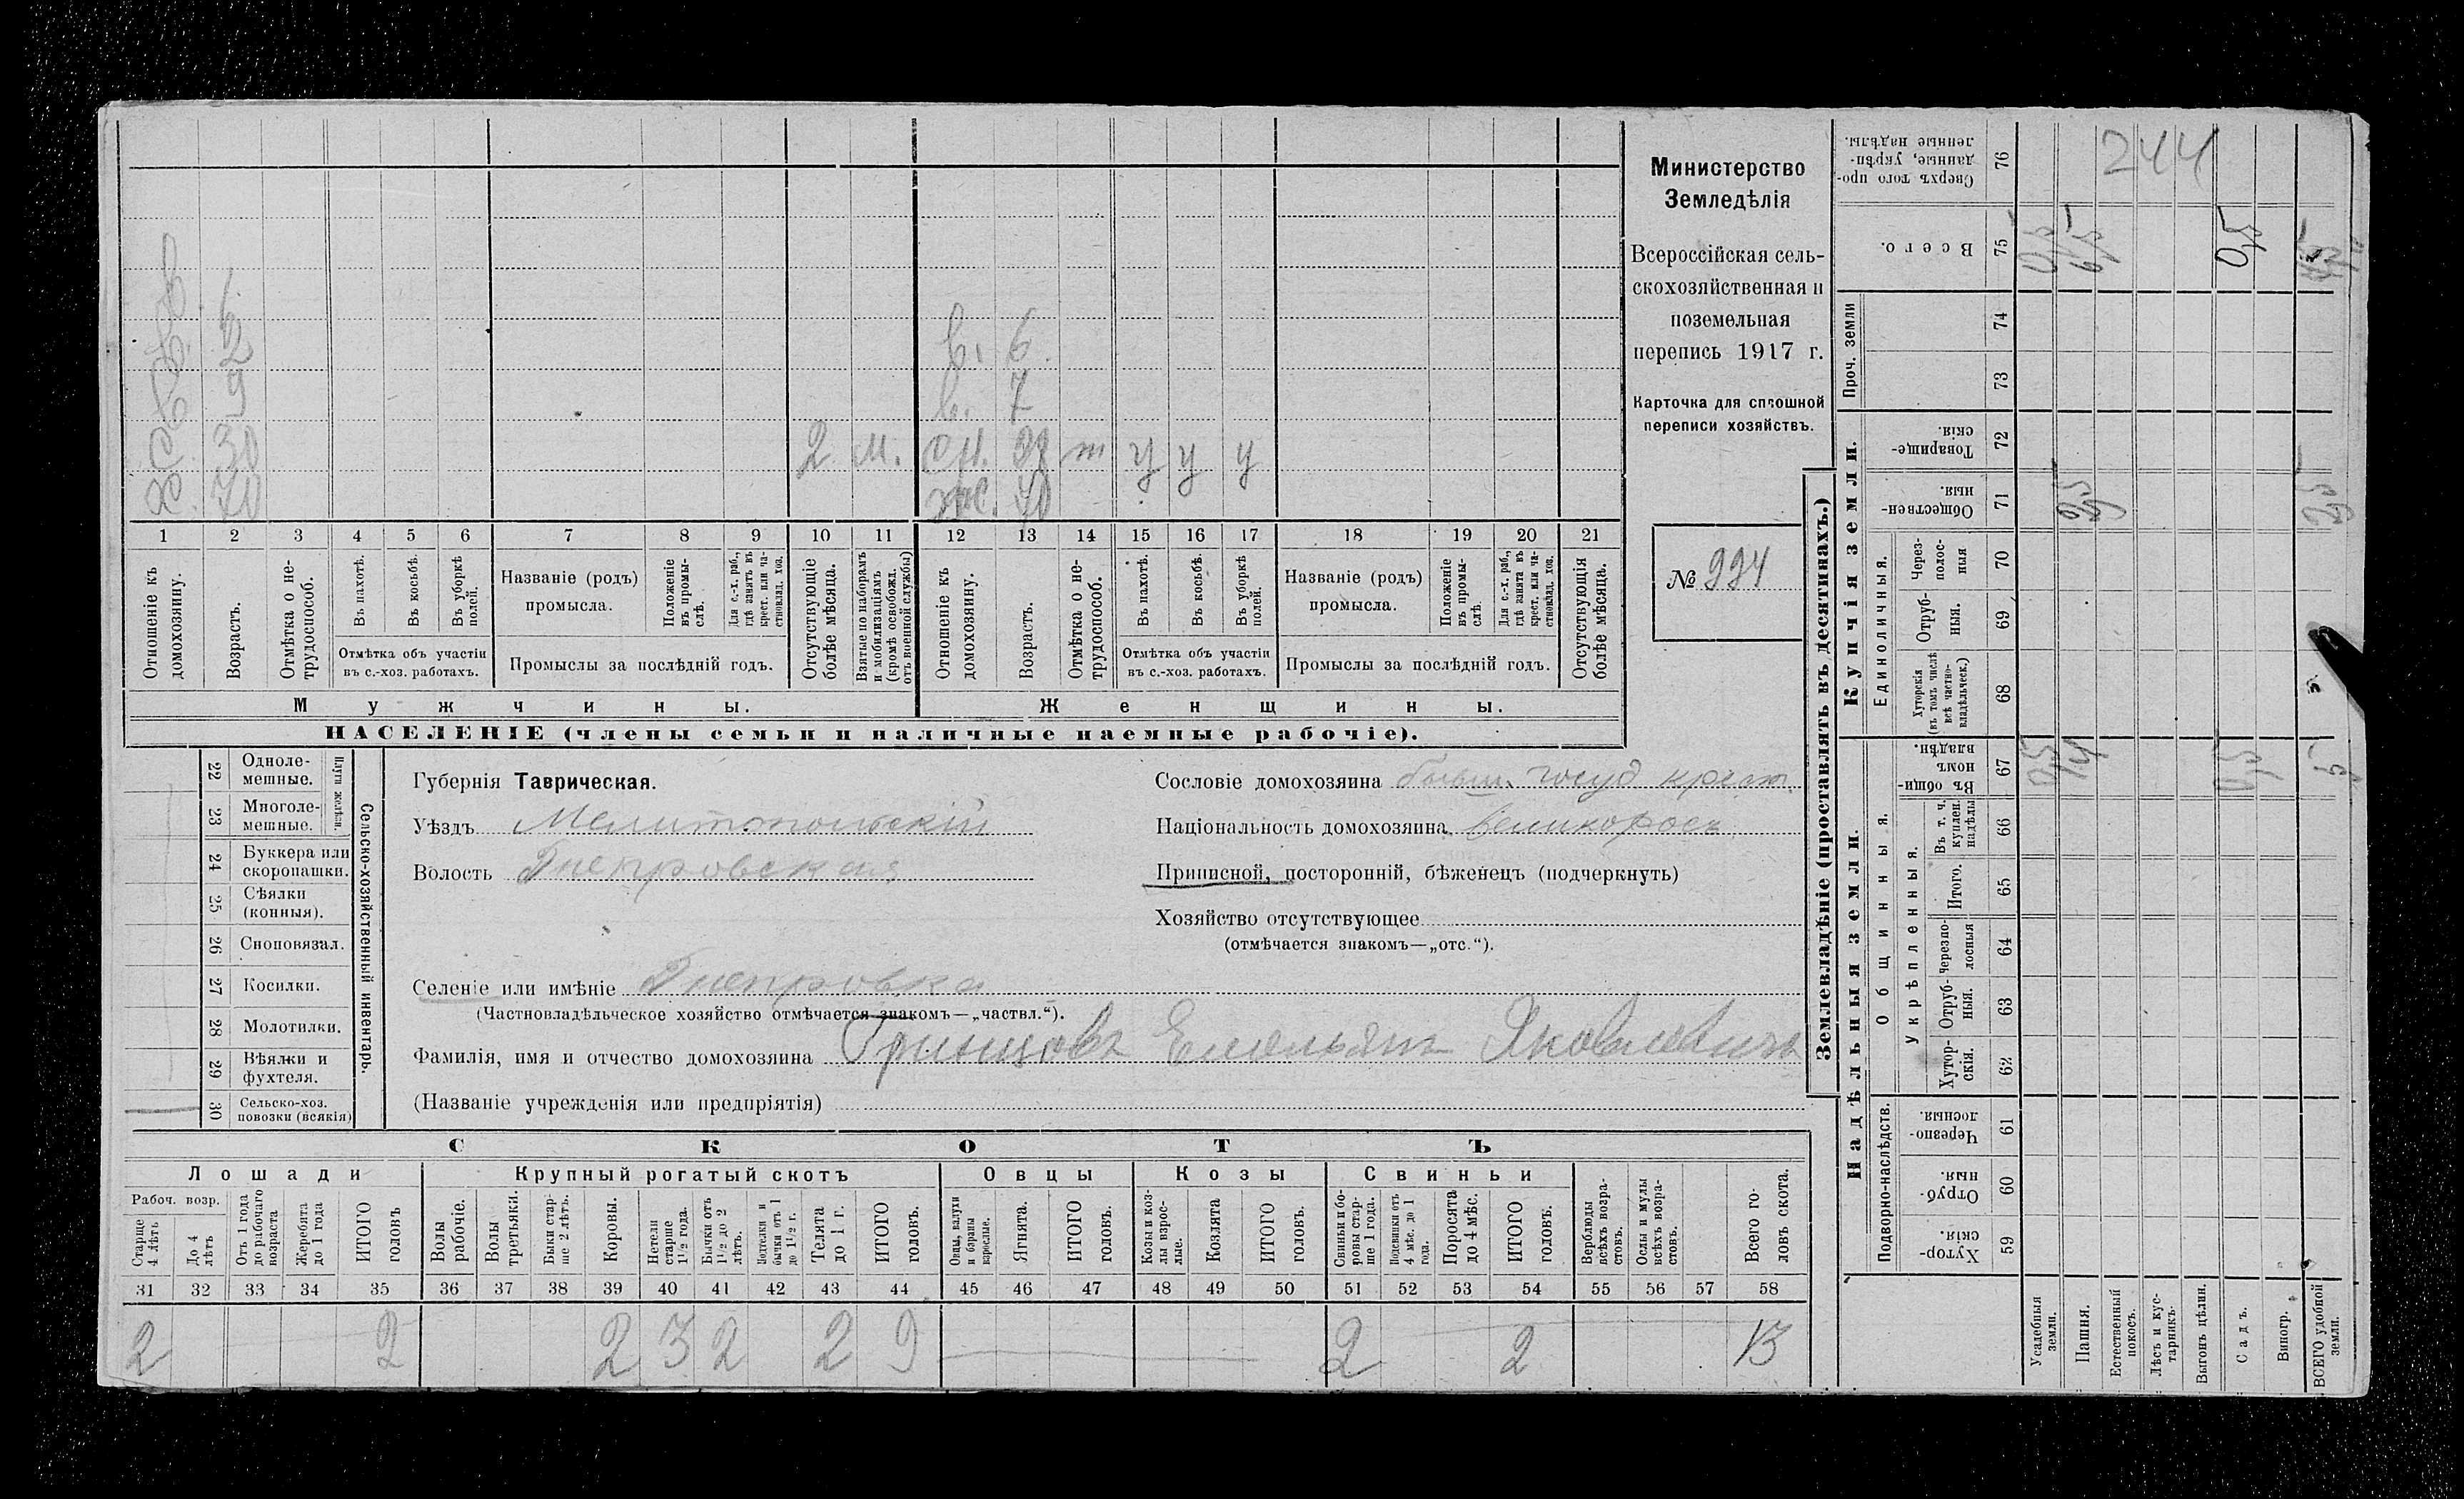 Министерство
Земледѣлія
Всероссійская сель-
скохозяйственная и
поземельная
перепись 1917 г.
Карточка для сплошной
переписи хозяйствъ.
№ 994
244
в.
в. 6
в. 2 в. 6.
в. 9 в. 7
с. 30 2 м. сн. 28 т у у у
х. 70 ж. 70
1 2 3 4 5 6 7 8 9 10 11 12 13 14 15 16 17 18 19 20 21
Отношеніе къ домохозяину.
Возрастъ.
Отмѣтка о не-трудоспособ.
Въ пахотѣ.
Въ косьбѣ.
Въ уборкѣ полей.
Отмѣтка объ участіи
въ с.-хоз. работахъ.
Названіе (родъ)
промысла.
Положеніе въ промы-слѣ.
Для с.-х. раб., гдѣ занятъ въ крест. или ча-стновлад. хоз.
Промыслы за послѣдній годъ.
Отсутствующіе болѣе мѣсяца.
Взятые по наборамъ и мобилизаціямъ (кромѣ освобожд. отъ военной службы)
Отношеніе къ домохозяину.
Возрастъ.
Отмѣтка о не-трудоспособ.
Въ пахотѣ.
Въ косьбѣ.
Въ уборкѣ полей.
Отмѣтка объ участіи
въ с.-хоз. работахъ.
Названіе (родъ)
промысла.
Положеніе въ промы-слѣ.
Для с.-х. раб., гдѣ занята въ крест. или ча-стновлад. хоз.
Промыслы за послѣдній годъ.
Отсутствующія болѣе мѣсяца.
Мужчины. Женщины.
НАСЕЛЕНІЕ (члены семьи и наличные наемные рабочіе).
Сельско-хозяйственный инвентарь.
Плуги желѣзн.
22 Одноле-мешные.
23 Многоле-мешные.
24 Буккера или скоропашки.
25 Сѣялки (конныя).
26 Сноповязал.
27 Косилки.
28 Молотилки.
29 Вѣялки и фухтеля.
30 Сельско-хоз. повозки (всякія)
Губернія Таврическая.
Уѣздъ Мелитопольскій
Волость Днепровская
Сословіе домохозяина бывш. госуд крест
Національность домохозяина великоросъ
Приписной, посторонній, бѣженецъ (подчеркнуть)
Хозяйство отсутствующее
(отмѣчается знакомъ—„отс.“).
Селеніе или имѣніе Днепровка
(Частновладѣльческое хозяйство отмѣчается знакомъ—„частвл.“).
Фамилія, имя и отчество домохозяина Гринцовъ Емельянъ Яковлевичъ
(Названіе учрежденія или предпріятія)
СКОТЪ
Лошади Крупный рогатый скотъ Овцы Козы Свиньи
Рабоч. возр.
Старше 4 лѣтъ
До 4 лѣтъ
Отъ 1 года до рабочаго возраста
Жеребята до 1 года
ИТОГО головъ
Волы рабочіе.
Волы третьяки.
Быки стар-ше 2 лѣтъ.
Коровы.
Нетели старше 1½ года.
Бычки отъ 1½ до 2 лѣтъ.
Подтелки и бычки отъ 1 до 1½ г.
Телята до 1 г.
ИТОГО головъ.
Овцы, валухи и бараны взрослые.
Ягнята.
ИТОГО головъ.
Козы и коз-лы взрос-лые.
Козлята
ИТОГО головъ.
Свиньи и бо-ровы стар-ше 1 года.
Подсвинки отъ 4 мѣс. до 1 года.
Поросята до 4 мѣс.
ИТОГО головъ.
Верблюды всѣхъ возра-стовъ.
Ослы и мулы всѣхъ возра-стовъ.
Всего го-ловъ скота.
31 32 33 34 35 36 37 38 39 40 41 42 43 44 45 46 47 48 49 50 51 52 53 54 55 56 57 58
2 2 2 3 2 2 9 2 2 13
Землевладѣніе (проставлять въ десятинахъ.)
Надѣльныя земли.
Купчія земли.
Проч. земли
Подворно-наслѣдств.
Общинныя.
Укрѣпленныя.
Единоличныя.
Сверхъ того про-данные, укрѣп-ленные надѣлы. 76
Всего. 75 0,5 6,5 0,5
74
73
Товарище-скія. 72
Обществен-ныя. 71 2,5 2,5
Через-полос-ныя 70
Отруб-ныя. 69
Хуторскія (въ томъ числѣ всѣ частно-владѣльческ.) 68
Въ общи-номъ владѣн. 67 0,5 4 0,5 5
Въ т. ч. куплен. надѣлы 66
Итого. 65
Черезпо-лосныя 64
Отруб-ныя. 63
Хутор-скія. 62
Черезпо-лосныя. 61
Отруб-ныя. 60
Хутор-скія. 59
Усадебныя земли.
Пашня.
Естественный покосъ.
Лѣсъ и кус-тарникъ.
Выгонъ цѣлин.
Садъ.
Виногр.
ВСЕГО удобной земли.